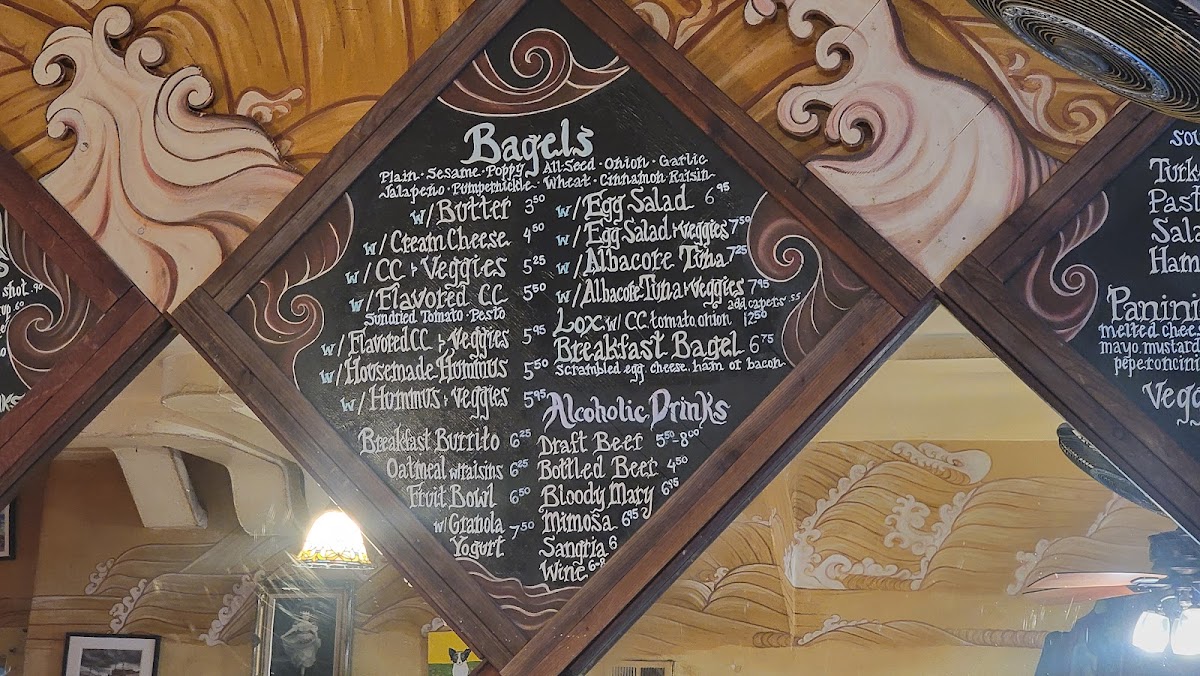 Bagels
Plain · Sesame · Poppy · All-Seed · Onion · Garlic
Jalapeño · Pumpernickle · Wheat · Cinnamon Raisin
w/ Butter 3.50
w/ Cream Cheese 4.50
w/ CC + Veggies 5.25
w/ Flavored CC 5.50
Sundried Tomato · Pesto
w/ Flavored CC + Veggies 5.95
w/ Housemade Hummus 5.50
w/ Hummus + Veggies 5.95
Breakfast Burrito 6.25
Oatmeal w/raisins 6.25
Fruit Bowl 6.50
w/ Granola
Yogurt 7.50
w/ Egg Salad 6.95
w/ Egg Salad + Veggies 7.50
w/ Albacore Tuna 7.25
w/ Albacore Tuna + Veggies 7.95
add capers .55
Lox w/ CC, tomato, onion 12.50
Breakfast Bagel 6.75
Scrambled egg, cheese, ham or bacon
Alcoholic Drinks
Draft Beer 5.50-8.00
Bottled Beer 4.50
Bloody Mary 6.95
Mimosa 6.95
Sangria 6
Wine 6-8
shot .90
Panini
melted chee
mayo, mustard
peperoncin
Vegg
SOU
Turk
Past
Sala
Ham